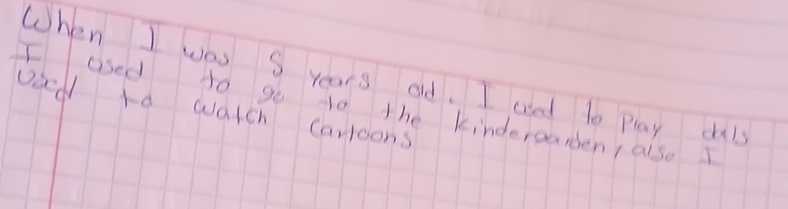 When I was 8 years old. I used to play dulls
I used to go to the kindergarden, also I
used to watch cartoons